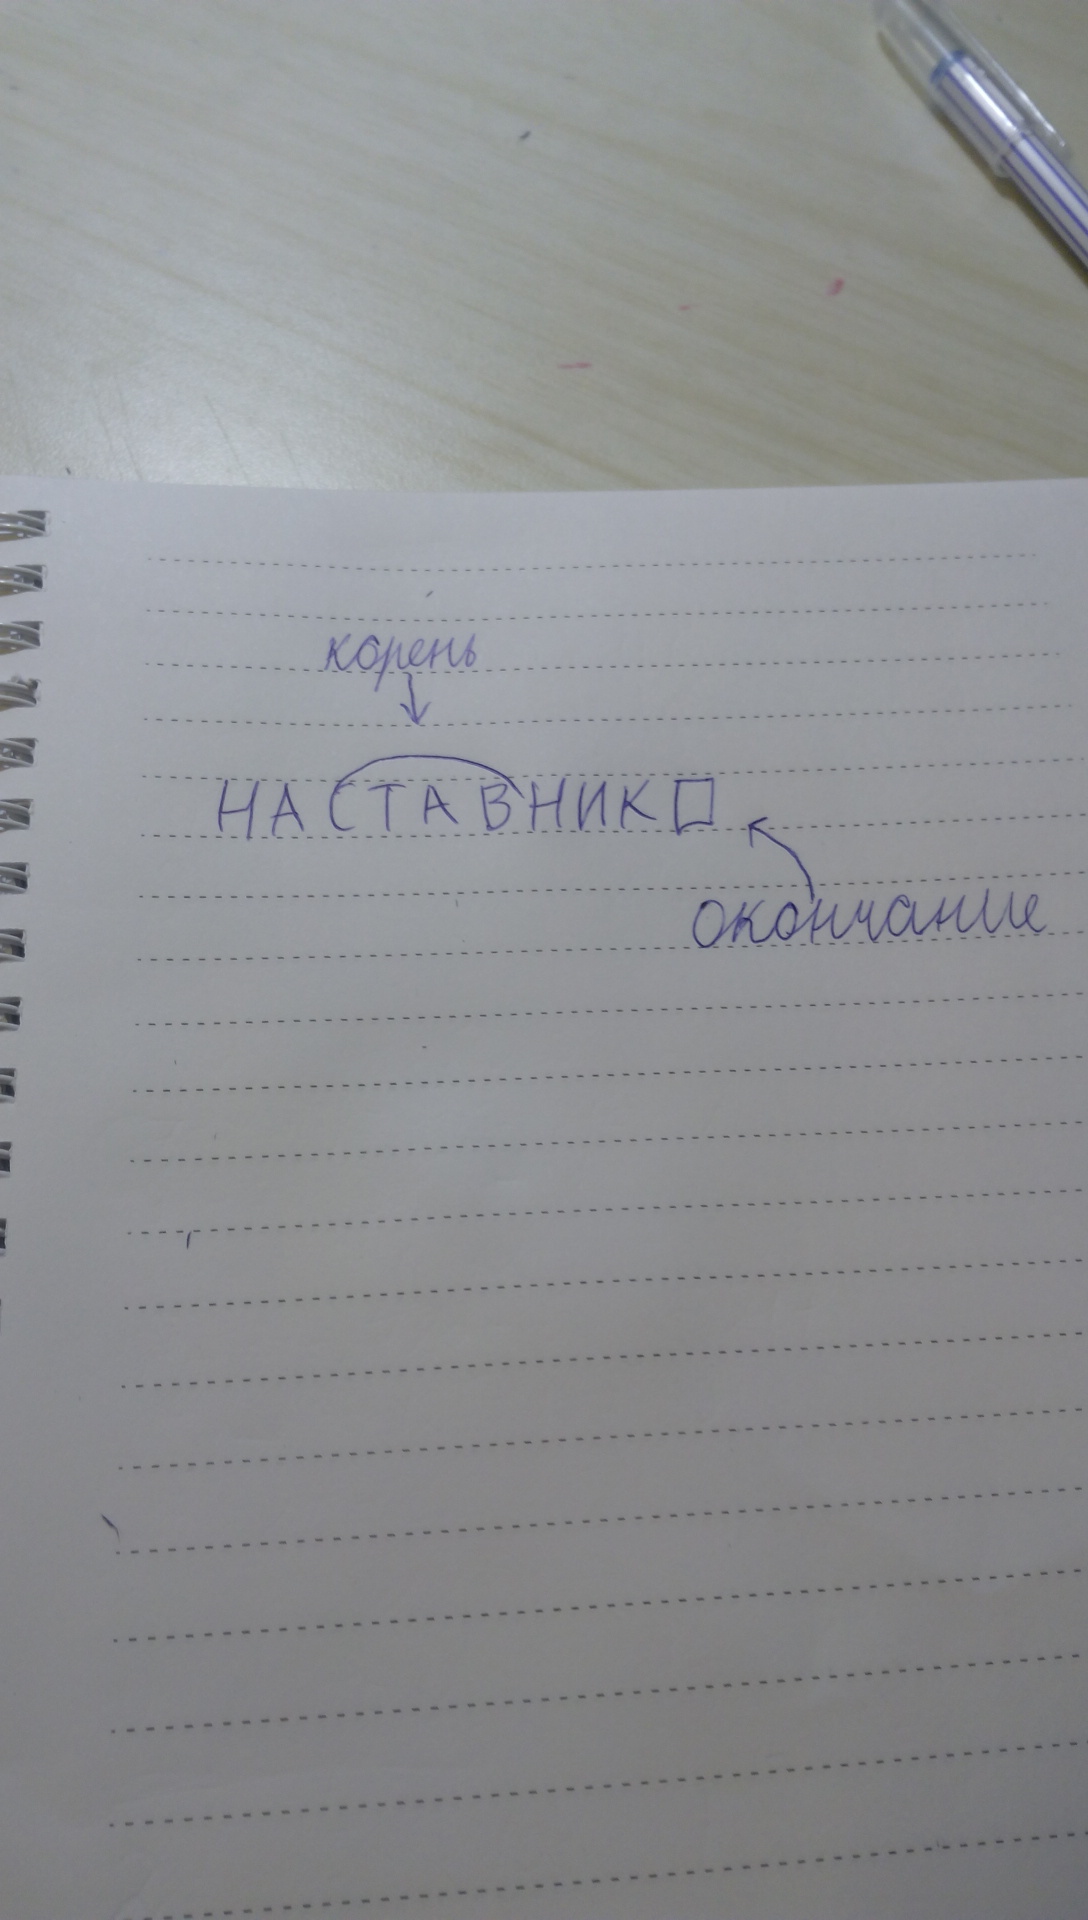 корень
НАСТАВНИК
окончание